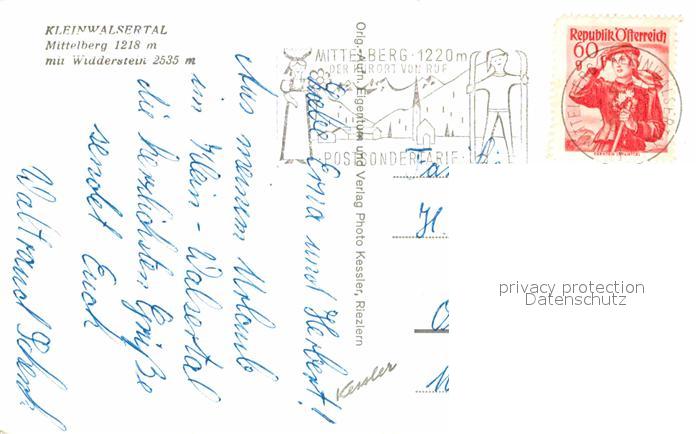 KLEINWALSERTAL
Mittelberg 1218 m
mit Widderstein 2535 m
Liebe Erna und Herbert!
Aus meinem Urlaub
im Klein-Walsertal
die herzlichsten Grüße
sendet Euch
Waltraud
Orig.-Aufn. Eigentum und Verlag Photo Kessler, Riezlern
Kessler
MITTELBERG · 1220m
DER KURORT VON RUF
POSTSONDERTARIF
Republik Österreich
60
g
Fa
H.
privacy protection
Datenschutz